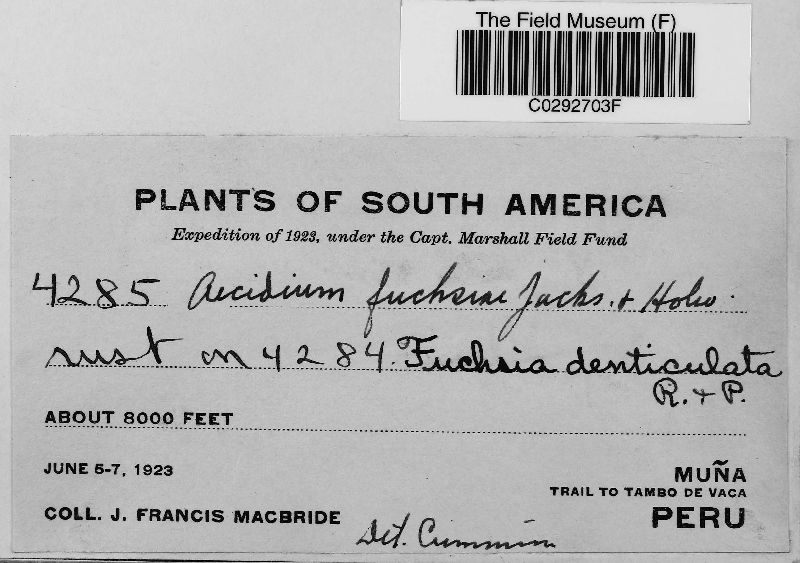 The Field Museum (F)
C0292703F
PLANTS OF SOUTH AMERICA
Expedition of 1923, under the Capt. Marshall Field Fund
4285 Aecidium fuchsiae Jacks. & Holw.
rust on 4284. Fuchsia denticulata
R. & P.
ABOUT 8000 FEET
JUNE 5-7, 1923
MUÑA
TRAIL TO TAMBO DE VACA
COLL. J. FRANCIS MACBRIDE
PERU
Det. Cummins